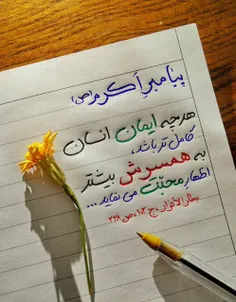 پیامبر اکرم (ص)
هر چه ایمان انسان
کامل تر باشد،
به همسرش بیشتر
اظهار محبّت می نماید ...
بحارالأنوار، ج ۱۰۳، ص ۲۲۸